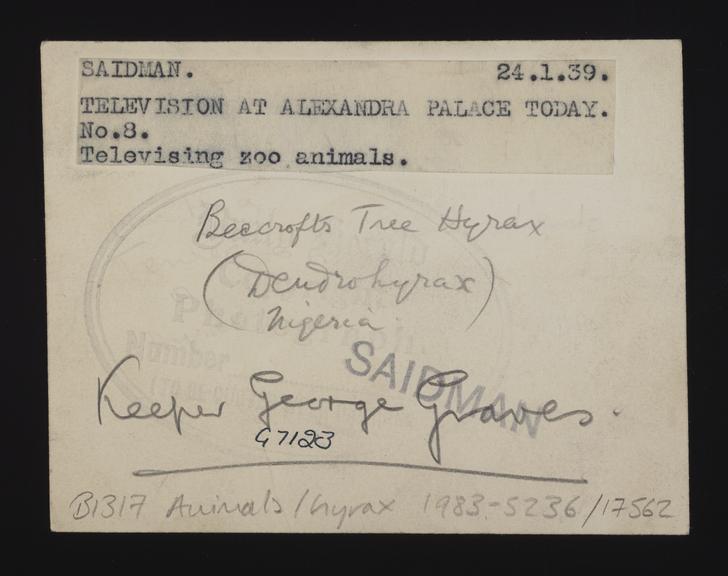 SAIDMAN. 24.1.39.
TELEVISION AT ALEXANDRA PALACE TODAY.
No.8.
Televising zoo animals.
Beecrofts Tree Hyrax
(Dendrohyrax)
Nigeria.
Number
SAIDMAN
Keeper George Graves.
G7123
B1317 Animals/hyrax 1983-5236/17562